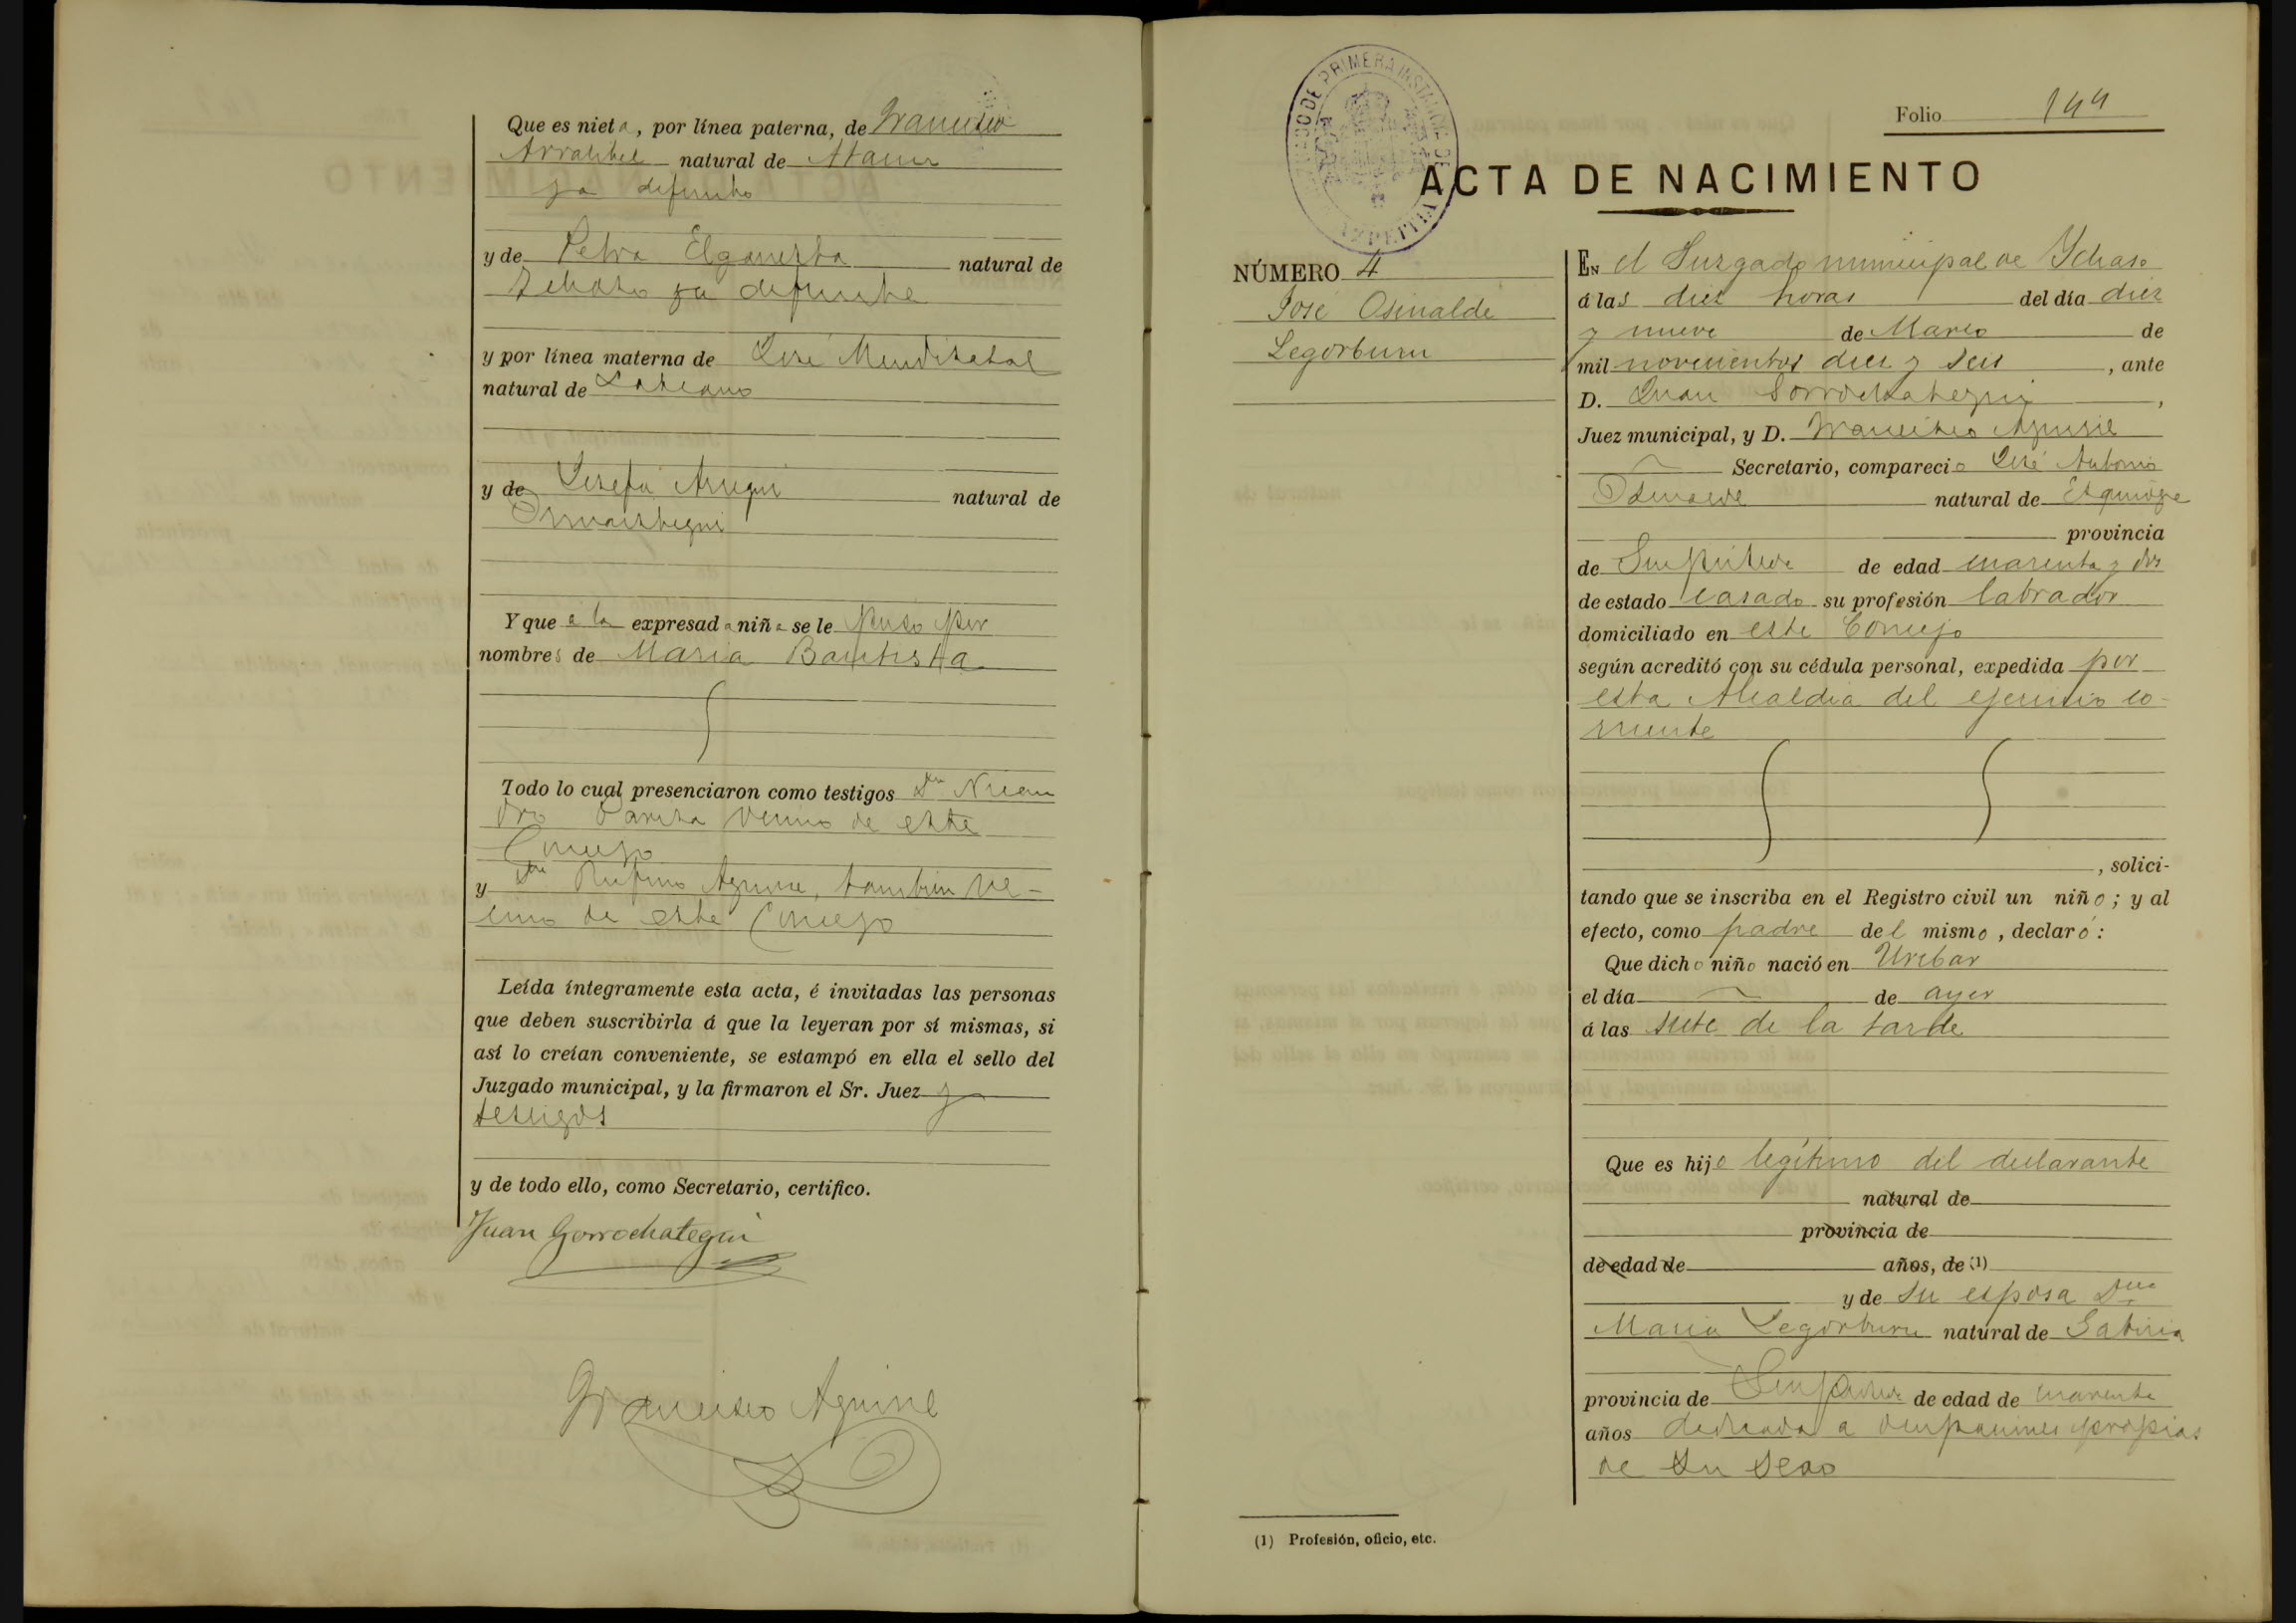 Que es nieta, por línea paterna, de Francisco
Arratibel natural de Ataun
ya difunto
y de Petra Elgarresta natural de
Ichaso ya difunta
y por línea materna de José Mendizabal
natural de Lazcano
y de Josefa Aregui natural de
Ormaiztegui
Y que a la expresada niña se le puso por
nombres de Maria Bautista
Todo lo cual presenciaron como testigos Dn Nican
dro vecino de este
Concejo
y Dn Rufino Aguirre, tambien ve-
cino de este Concejo
Leída íntegramente esta acta, é invitadas las personas
que deben suscribirla á que la leyeran por sí mismas, si
así lo creían conveniente, se estampó en ella el sello del
Juzgado municipal, y la firmaron el Sr. Juez y
testigos
y de todo ello, como Secretario, certifico.
Juan Gorrochategui
Francisco Aguirre
JUZGADO DE PRIMERA INSTANCIA DE AZPEITIA
Folio 144
ACTA DE NACIMIENTO
NÚMERO 4
José Osinalde
Legorburu
EN el Juzgado municipal de Ychaso
á las diez horas del día diez
y nueve de Marzo de
mil novecientos diez y seis, ante
D. Juan Gorrochategui,
Juez municipal, y D. Francisco Aguirre
Secretario, compareció José Antonio
Osinalde natural de Ezquioga
provincia
de Guipúzcoa de edad cuarenta y dos
de estado casado su profesión labrador
domiciliado en este Concejo
según acreditó con su cédula personal, expedida por
esta Alcaldia del ejercicio co-
rriente
, solici-
tando que se inscriba en el Registro civil un niño; y al
efecto, como padre del mismo, declaró:
Que dicho niño nació en Uribar
el día de ayer
á las siete de la tarde
Que es hijo legítimo del declarante
natural de
provincia de
de edad de años, de (1)
y de su esposa Dña
Maria Legorburu natural de Gabiria
provincia de Guipúzcoa de edad de cuarenta
años dedicada a ocupaciones propias
de su sexo
(1) Profesión, oficio, etc.